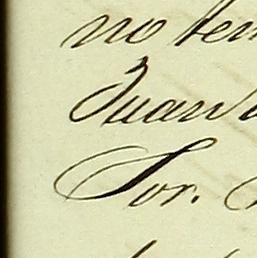 no ten
Juan
Sor.